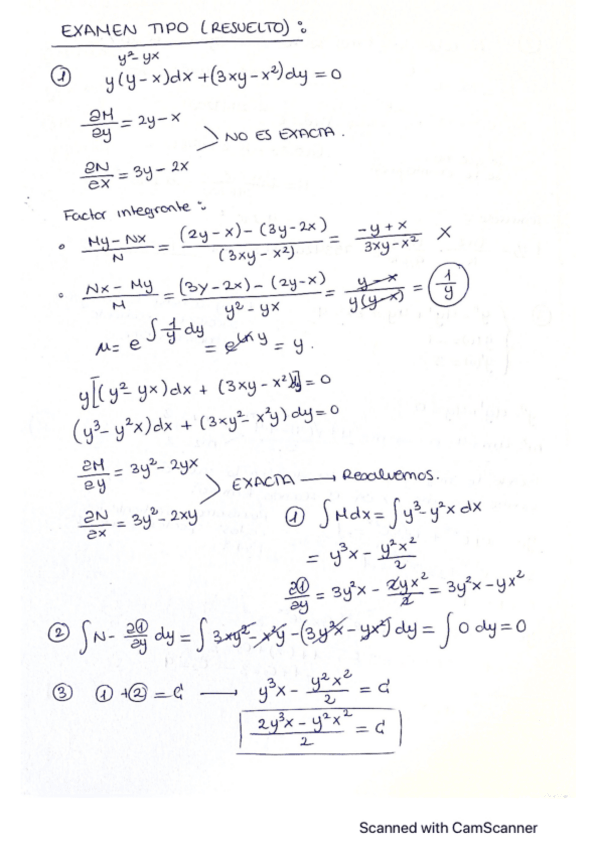 EXAMEN TIPO (RESUELTO):
y²-yx
① y(y-x)dx+(3xy-x²)dy=0
∂M/∂y = 2y-x
NO ES EXACTA.
∂N/∂x = 3y-2x
Factor integrante:
• (My-Nx)/N = ((2y-x)-(3y-2x))/(3xy-x²) = (-y+x)/(3xy-x²) X
• (Nx-My)/M = ((3y-2x)-(2y-x))/(y²-yx) = (y-x)/(y(y-x)) = (1/y)
μ = e^∫(1/y)dy = e^(ln y) = y.
y[(y²-yx)dx + (3xy-x²)dy]=0
(y³-y²x)dx + (3xy²-x²y)dy=0
∂M/∂y = 3y²-2yx
EXACTA → Resolvemos.
∂N/∂x = 3y²-2xy
① ∫Mdx = ∫y³-y²x dx
= y³x - y²x²/2
∂①/∂y = 3y²x - 2yx²/2 = 3y²x-yx²
② ∫N-∂①/∂y dy = ∫3xy²-x²y-(3y²x-yx²)dy = ∫0 dy=0
③ ①+②=C → y³x - y²x²/2 = C
(2y³x-y²x²)/2 = C
Scanned with CamScanner